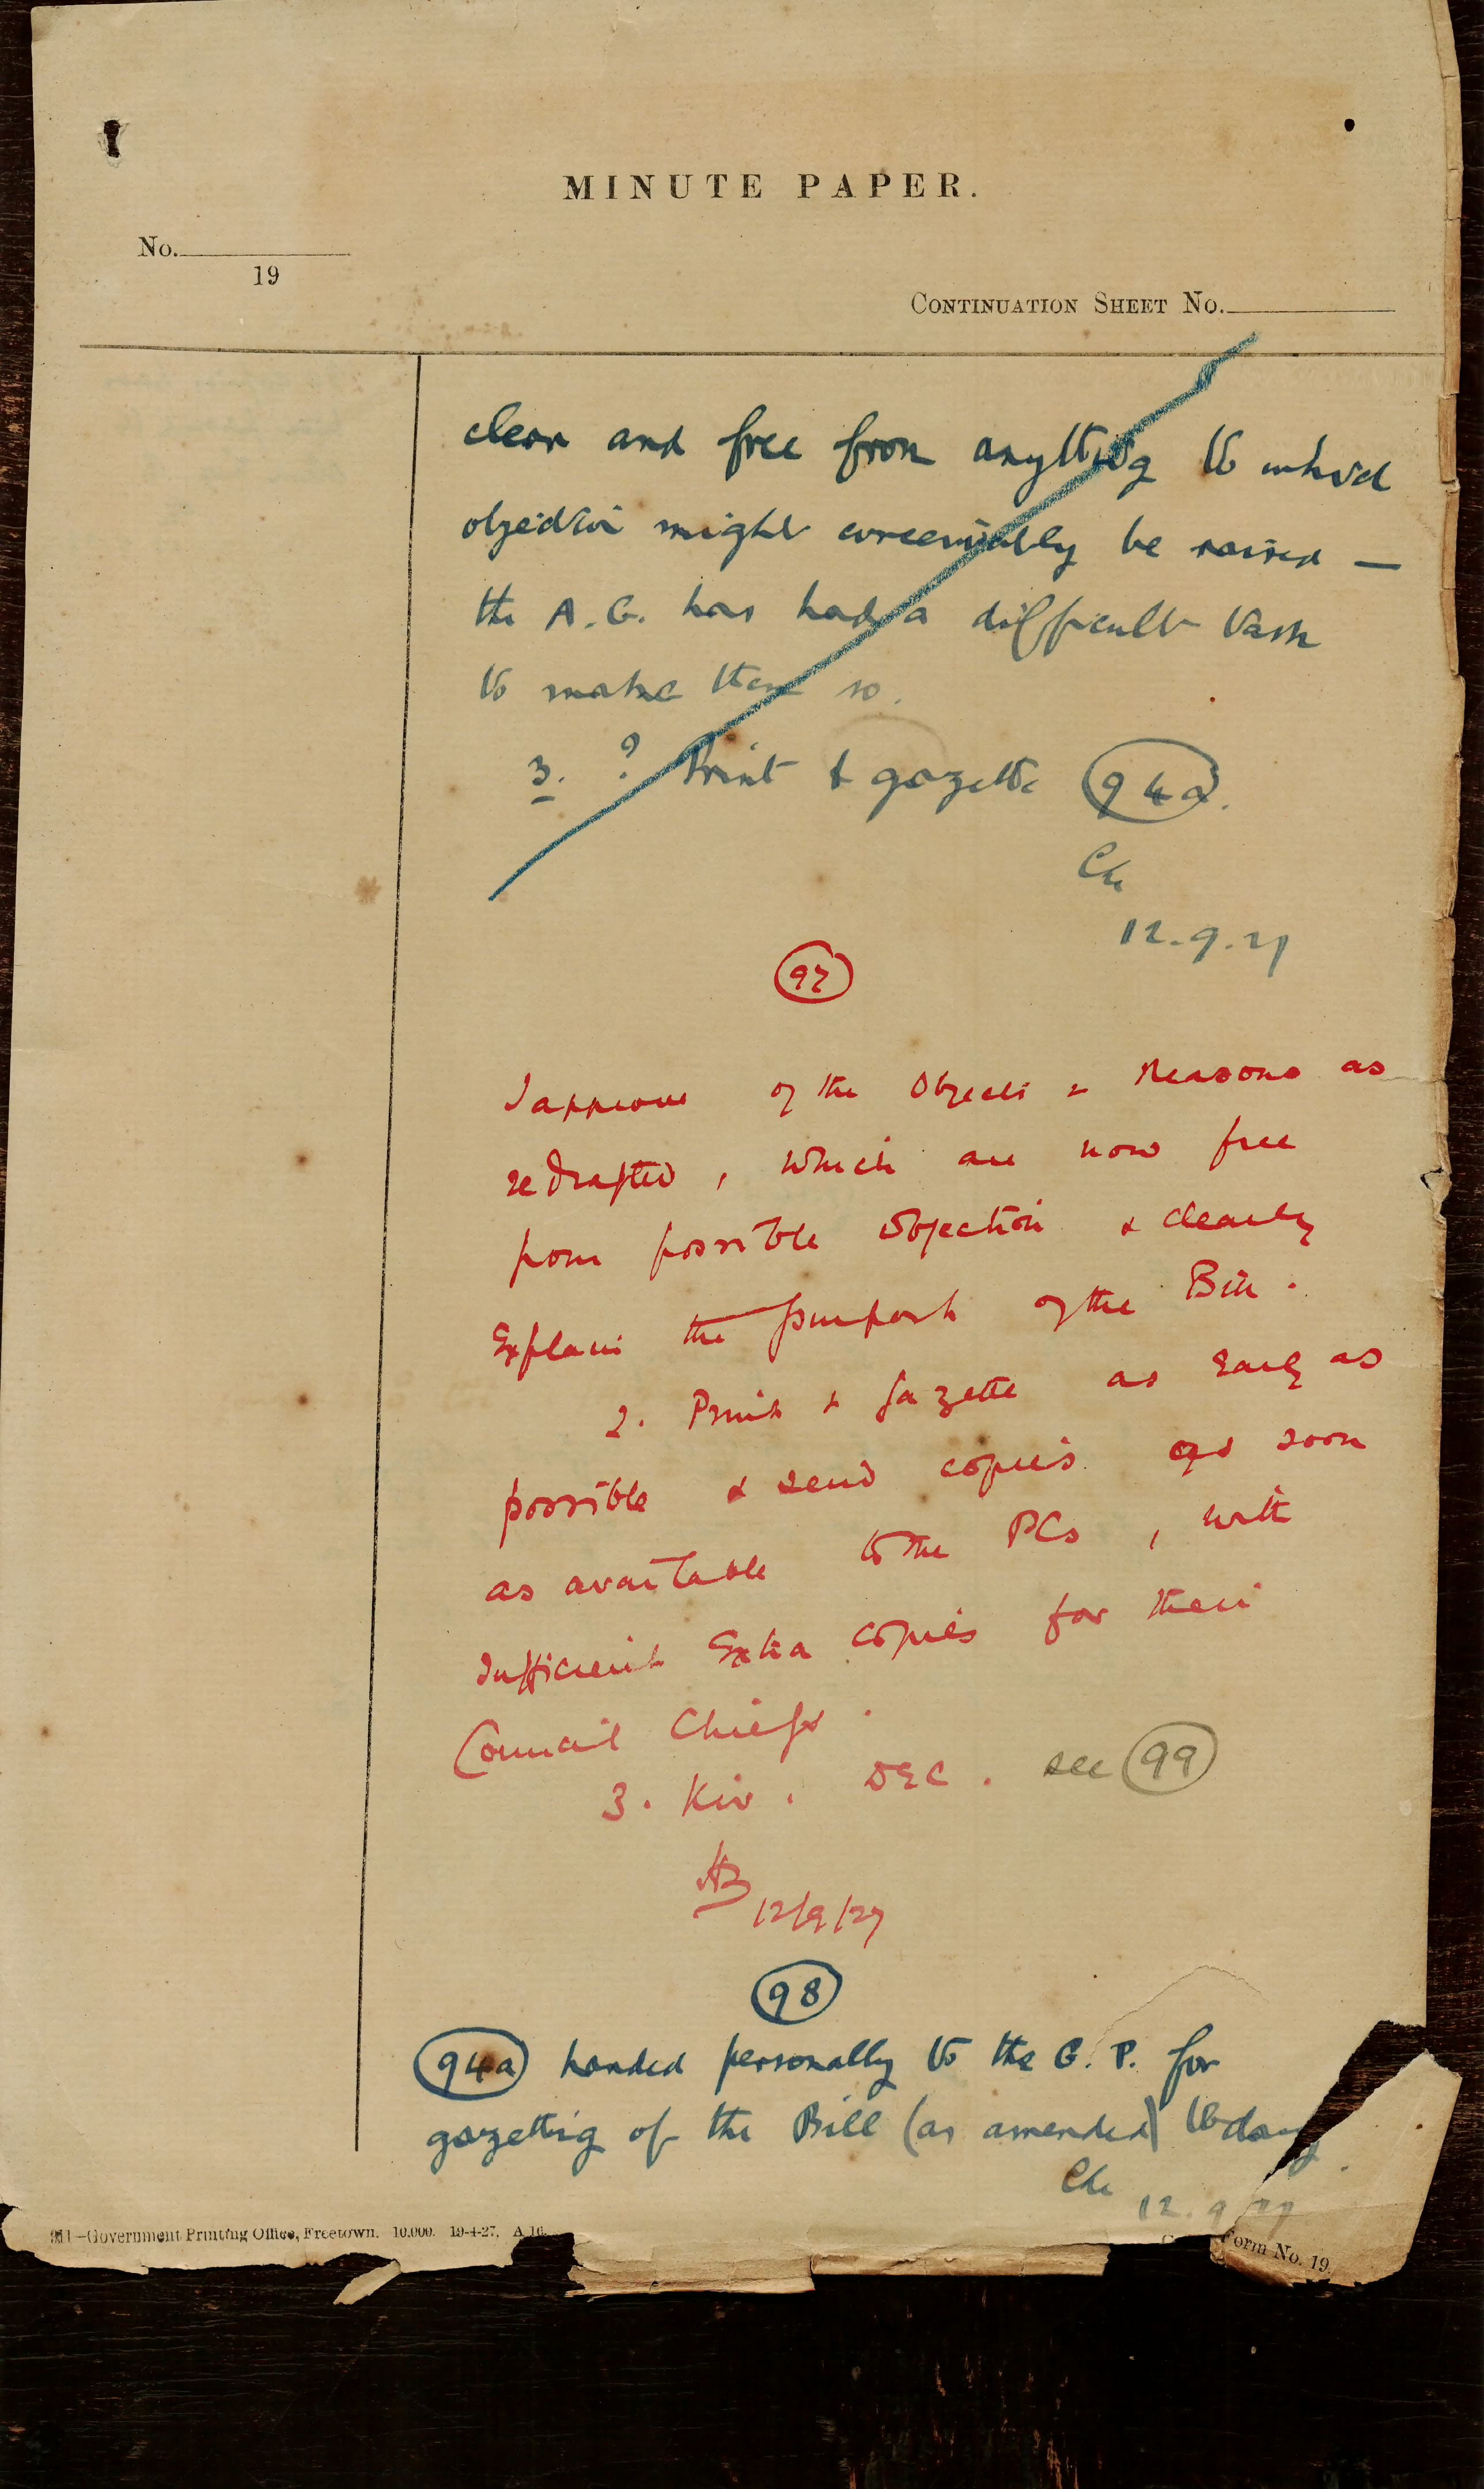 MINUTE PAPER.
No.
19
CONTINUATION SHEET No.
clear and free from anything to which
objection might conceivably be raised —
the A.G. has had a difficult task
to make them so.
3. ? Print & gazette 94a.
12.9.27
97
I approve of the Objects & Reasons as
redrafted, which are now free
from possible objection & clearly
Explain the purport of the Bill.
2. Print & gazette as early as
possible & send copies as soon
as available to the PCs, with
sufficient Extra copies for their
Council Chiefs.
3. Kiv. DEC. see 99
12/9/27
98
94a handed personally to the G.P. for
gazetting of the Bill (as amended) today.
12.9.27
—Government Printing Office, Freetown. 10,000. 19-4-27. A 16.
Form No. 19.